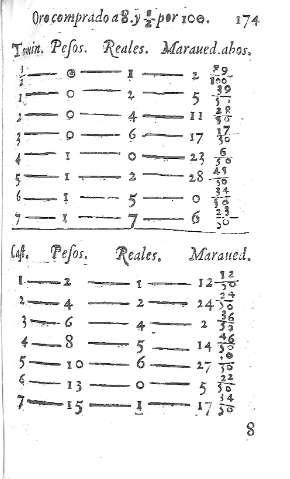 Oro comprado a 8. y 1/2 por 100. 174
Tomin. Pesos. Reales. Maraued. abos.
1/2 — 0 — 1 — 2 89/100
1 — 0 — 2 — 5 39/50
2 — 0 — 4 — 11 28/50
3 — 0 — 6 — 17 17/50
4 — 1 — 0 — 23 6/50
5 — 1 — 2 — 28 45/50
6 — 1 — 5 — 0 34/50
7 — 1 — 7 — 6 23/50
Cast. Pesos. Reales. Maraued.
1 — 2 — 1 — 12 12/50
2 — 4 — 2 — 24 24/50
3 — 6 — 4 — 2 36/50
4 — 8 — 5 — 14
5 — 10 — 6 — 27 10/50
6 — 13 — 0 — 5 22/50
7 — 15 — 1 — 17 34/50
8